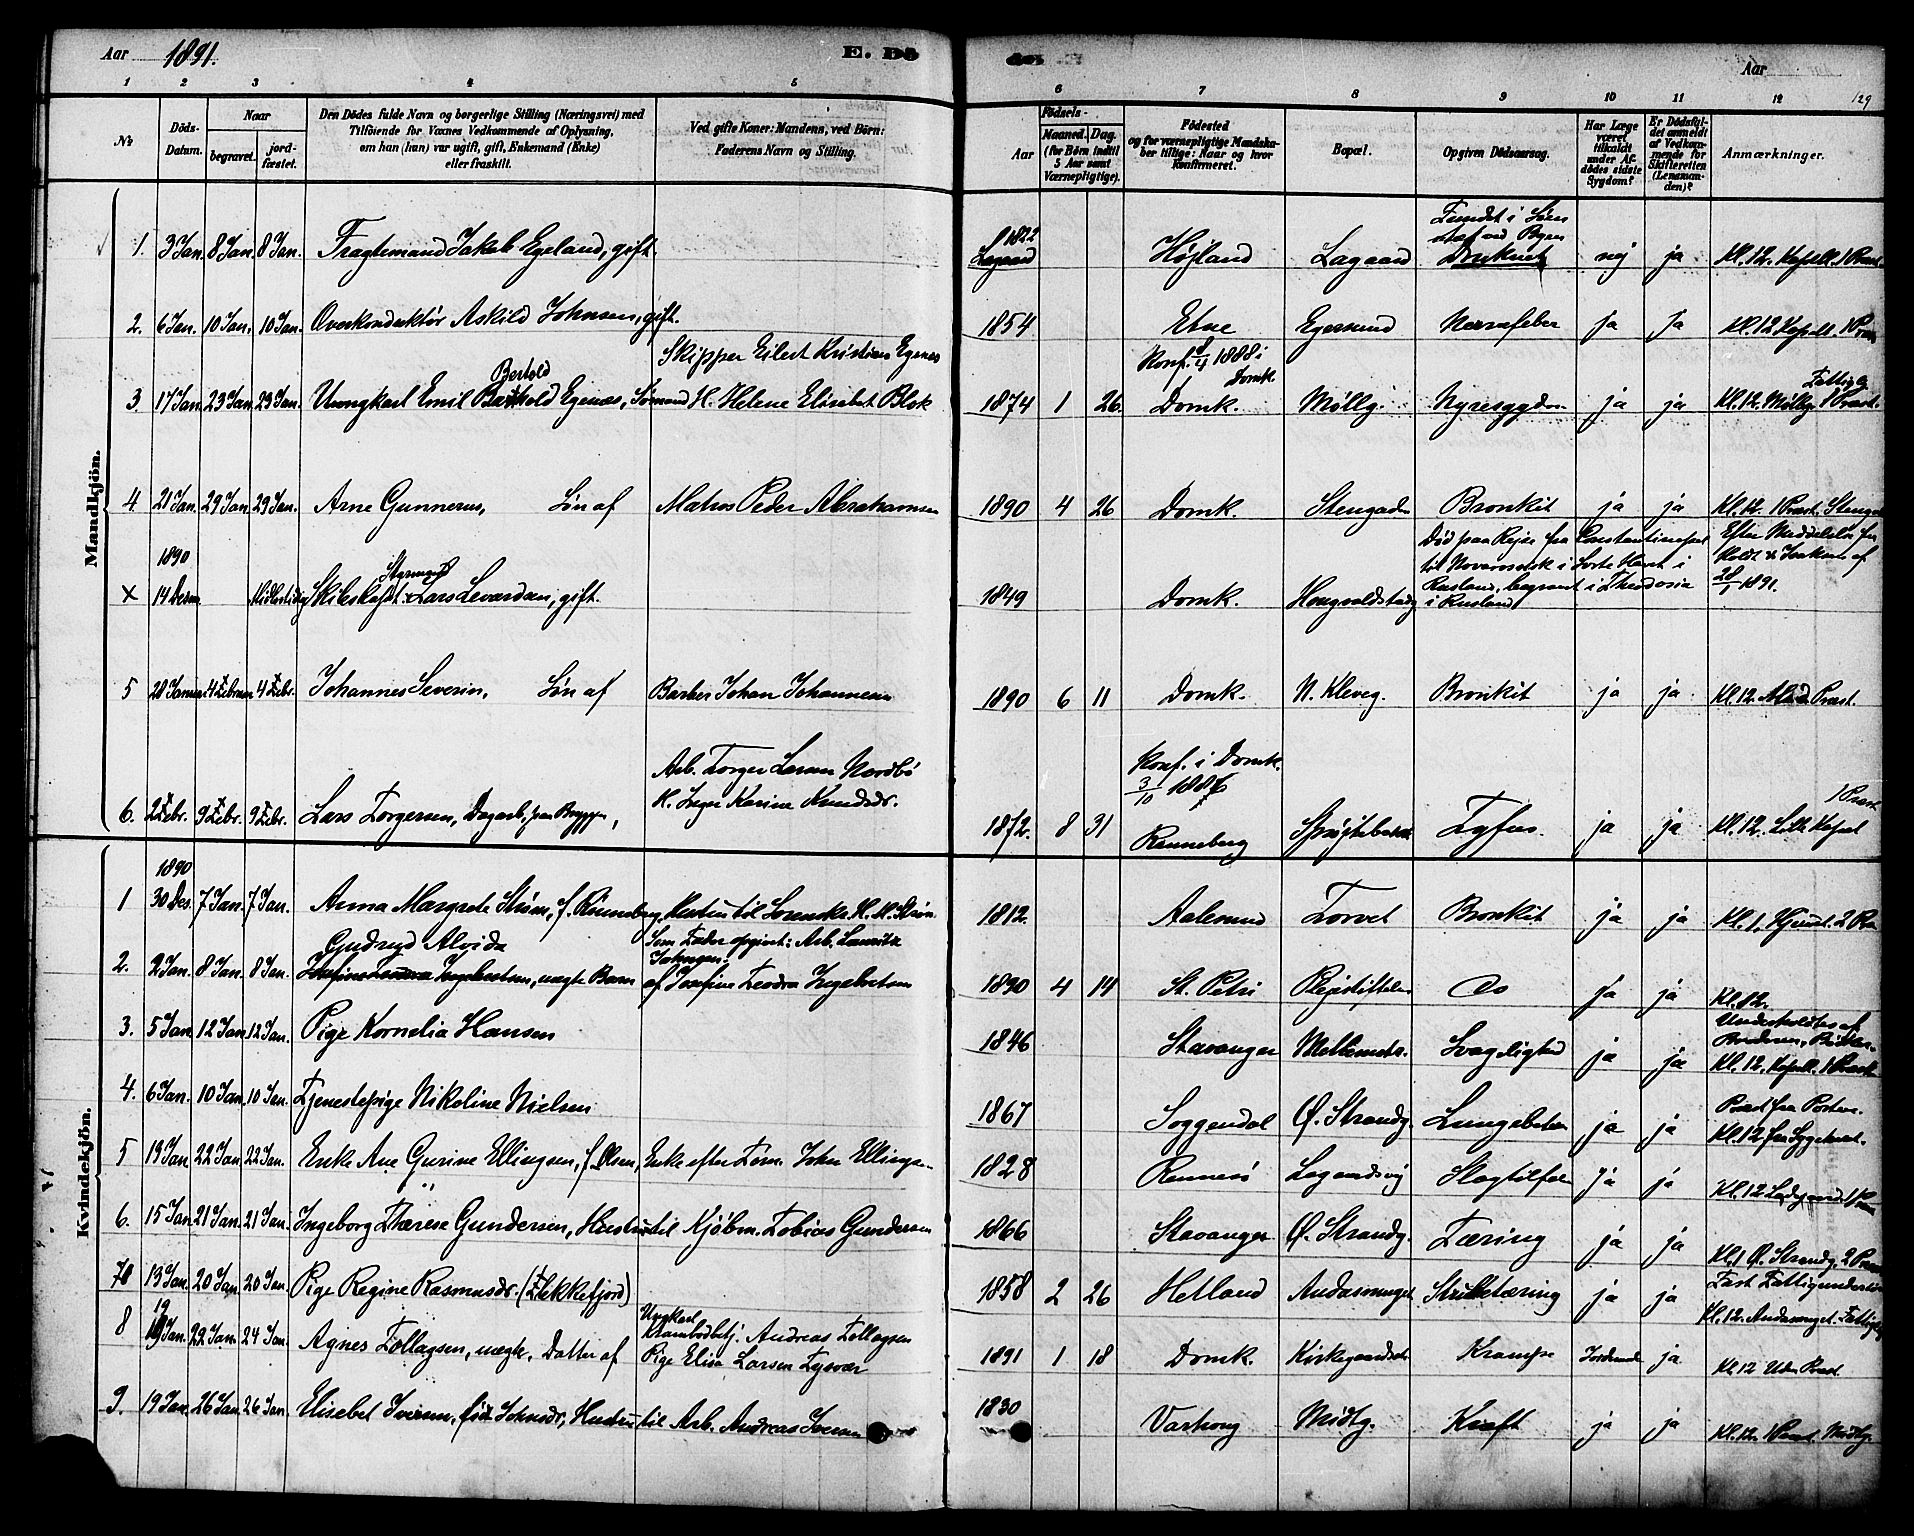 Aar 1891. E. Dö de. Aar
129
1 2 3 4 5 6 7 8 9 10 11 12
No Döds-Datum. Naar begravet. jord-fæstet. Den Dödes fulde Navn og borgerlige Stilling (Næringsvei) med Tilföiende for Voxnes Vedkommende af Oplysning, om han (hun) var ugift, gift, Enkemand (Enke) eller fraskilt. Ved gifte Koner: Mandens, ved Börn: Faderens Navn og Stilling. Födsels- Aar Maaned. Dag. (for Börn indtil 5 Aar samt Værnepligtige). Födested og for værnepligtige Mandskaber tillige: Naar og hvor Konfirmeret. Bopæl. Opgiven Dödsaarsag. Har Læge været tilkaldt under Afdödes sidste Sygdom? Er Dödsfaldet anmeldt af Vedkommende for Skifteretten (Lensmanden)? Anmærkninger.
Mandkjön.
1. 3 Jan. 8 Jan. 8 Jan. Fragtemand Jakob Egeland, gift. 1822 Højland Lagaard Fundet i Søen ved Byen Druknet nej ja Kl. 12. Kapell. 1 Præst.
2. 6 Jan. 10 Jan. 10 Jan. Overkonduktør Askild Johnsen, gift. 1854 Etne Egersund Nervefeber ja ja Kl. 12 Kapell. 1 Præst
Skipper Eilert Kristian Egenes Konf. 8/4 1888 i Domk.
3. 17 Jan. 23 Jan. 23 Jan. Ungkarl Emil Bertold Egenæs, Sømand H. Helene Elisabet Blok 1874 1 26 Domk. Møllg. Nyresygdom ja ja Kl. 12. Møllg. 1 Præst.
4 21 Jan. 29 Jan. 29 Jan. Arne Gunnerus, Søn af Matros Peder Abrahamsen 1890 4 26 Domk. Stengaden Bronkit ja ja Kl. 12. 1 Præst. Stengad
1890
x 14 Desm. Skibskapt. Styrmand Lars Levardsen, gift. 1849 Domk. Død paa Rejse fra Constantinopel til Novorossisk i Sorte Havet i Rusland, begravet i Theodosia i Rusland Efter Meddelelse fra af 28/1 1891.
5 28 Januar. 4 Februar 4 Febr. Johannes Severin, Søn af Barber Johan Johannesen 1890 6 11 Domk. N. Kleveg. Bronkit ja ja Kl. 12. Præst.
Arb. Torger Larsen Nordbø Konf. i Domk. 3/10 1886
6. 2 Febr. 9 Febr. 9 Febr. Lars Torgersen, Dagarb. paa Bryggen, H. Inger Karine Knudsdr. 1872. 8 31 Renneberg Tyfus. ja ja Kl. 12. Lille Kapel 1 Præst
Kvindekjön.
1890
1 30 Des. 7 Jan. 7 Jan. Anna Margrete Strøm, f. Rønneberg, Hustru til H. M. Strøm 1812. Aalesund Torvet Bronkit ja ja Kl. 1. 2 Præ
Gudryd Alvide Som Fader opgivet: Arb. Lauritz Johnsen.
2. 2 Jan. 8 Jan. 8 Jan. Ingebretsen, uægte Barn af Josefine Teodora Ingebretsen 1890 4 14 St. Petri Plejestiftelsen Do ja ja Kl. 12.
3. 5 Jan. 12 Jan. 12 Jan. Pige Kornelia Hansen 1846 Stavanger Mellemstr. Svagelighed ja ja Underholdtes af Broderen, Kl. 12. Kapell. 1 Præst
4. 6 Jan. 10 Jan. 10 Jan. Tjenestepige Nikoline Nielsen 1867 Soggendal Ø. Strandg. Lungebetæn ja ja Præst fra Porten. Kl. 12 fra Sygehuset.
5 13 Jan. 22 Jan. 22 Jan. Enke Ane Gurine Ellingsen, f. Olsen, Enke efter Tøm. John Ellingsen 1828 Rennesø Lagaardsvej Slagtilfælde ja ja Kl. 12 Ladegaard 1 Præ
6. 15 Jan. 21 Jan. 21 Jan. Ingeborg Therese Gundersen, Hustru til Kjøbm. Tobias Gundersen 1866 Stavanger Ø. Strandg. Tæring ja ja Kl. 1 Ø. Strandg. 2 Præst
7 13 Jan. 20 Jan. 20 Jan. Pige Regine Rasmusdr. (Flekkefjord) 1858 2 26 Hetland Andasmuget Strubetæring ja ja Fast Fattigunderstø Kl. 12. Andasmuget.
8 19 Jan. 22 Jan. 24 Jan. Agnes Tollagsen, uægte, Datter af Ungkarl Krambodbetj. Andreas Tollagsen Pige Elisa Larsen Tysvær 1891 1 18 Domk. Kirkegaardsstr. Krampe Jordmoder ja Kl. 12 Uden Præst.
9. 19 Jan. 26 Jan. 26 Jan. Elisebet Iversen, født Johnsdr., Hustru til Arb. Andreas Iversen 1830 Varhoug Midtg. Kræft ja ja Kl. 12. 1 Præst. Midtg.